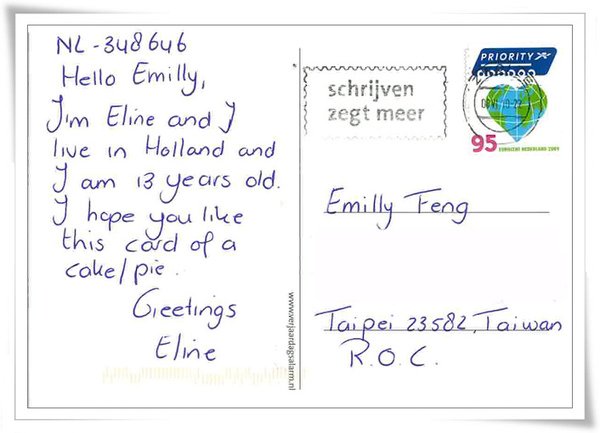 NL-348646
Hello Emilly,
I'm Eline and I
live in Holland and
I am 13 years old.
I hope you like
this card of a
cake/pie.
Greetings
Eline
www.verjaardagsalarm.nl
schrijven
zegt meer
PRIORITY
95
NEDERLAND 2009
Emilly Feng
Taipei 23582, Taiwan
R.O.C.